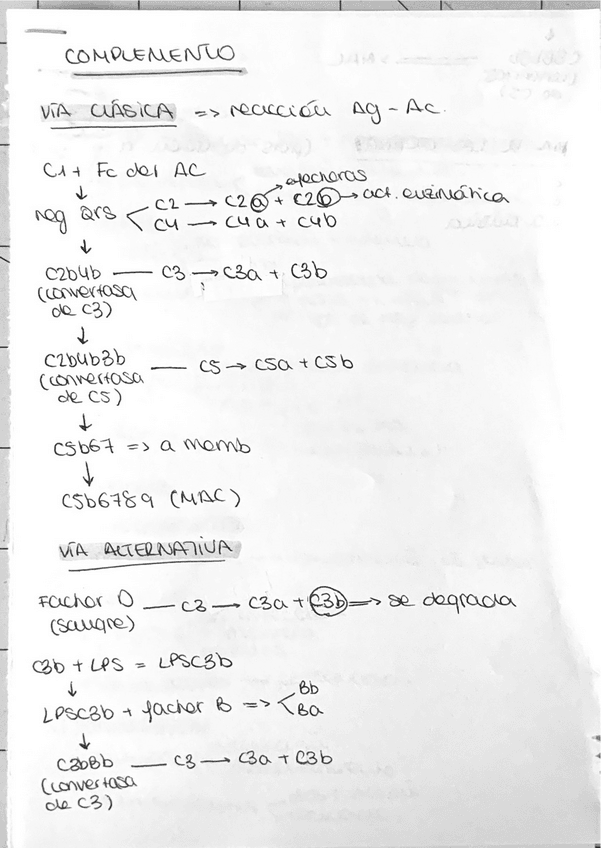 COMPLEMENTO
VÍA CLÁSICA => reacción Ag - Ac.
C1 + Fc del AC
↓ efectoras
neg qrs < C2 → C2a + C2b → act. enzimática
C4 → C4a + C4b
↓
C2b4b — C3 → C3a + C3b
(convertasa
de C3)
↓
C2b4b3b — C5 → C5a + C5b
(convertasa
de C5)
↓
C5b67 => a memb
↓
C5b6789 (MAC)
VÍA ALTERNATIVA
Factor D — C3 → C3a + C3b => se degrada
(sangre)
C3b + LPS = LPSC3b
↓
LPSC3b + factor B => < Bb
Ba
↓
C3bBb — C3 → C3a + C3b
(convertasa
de C3)